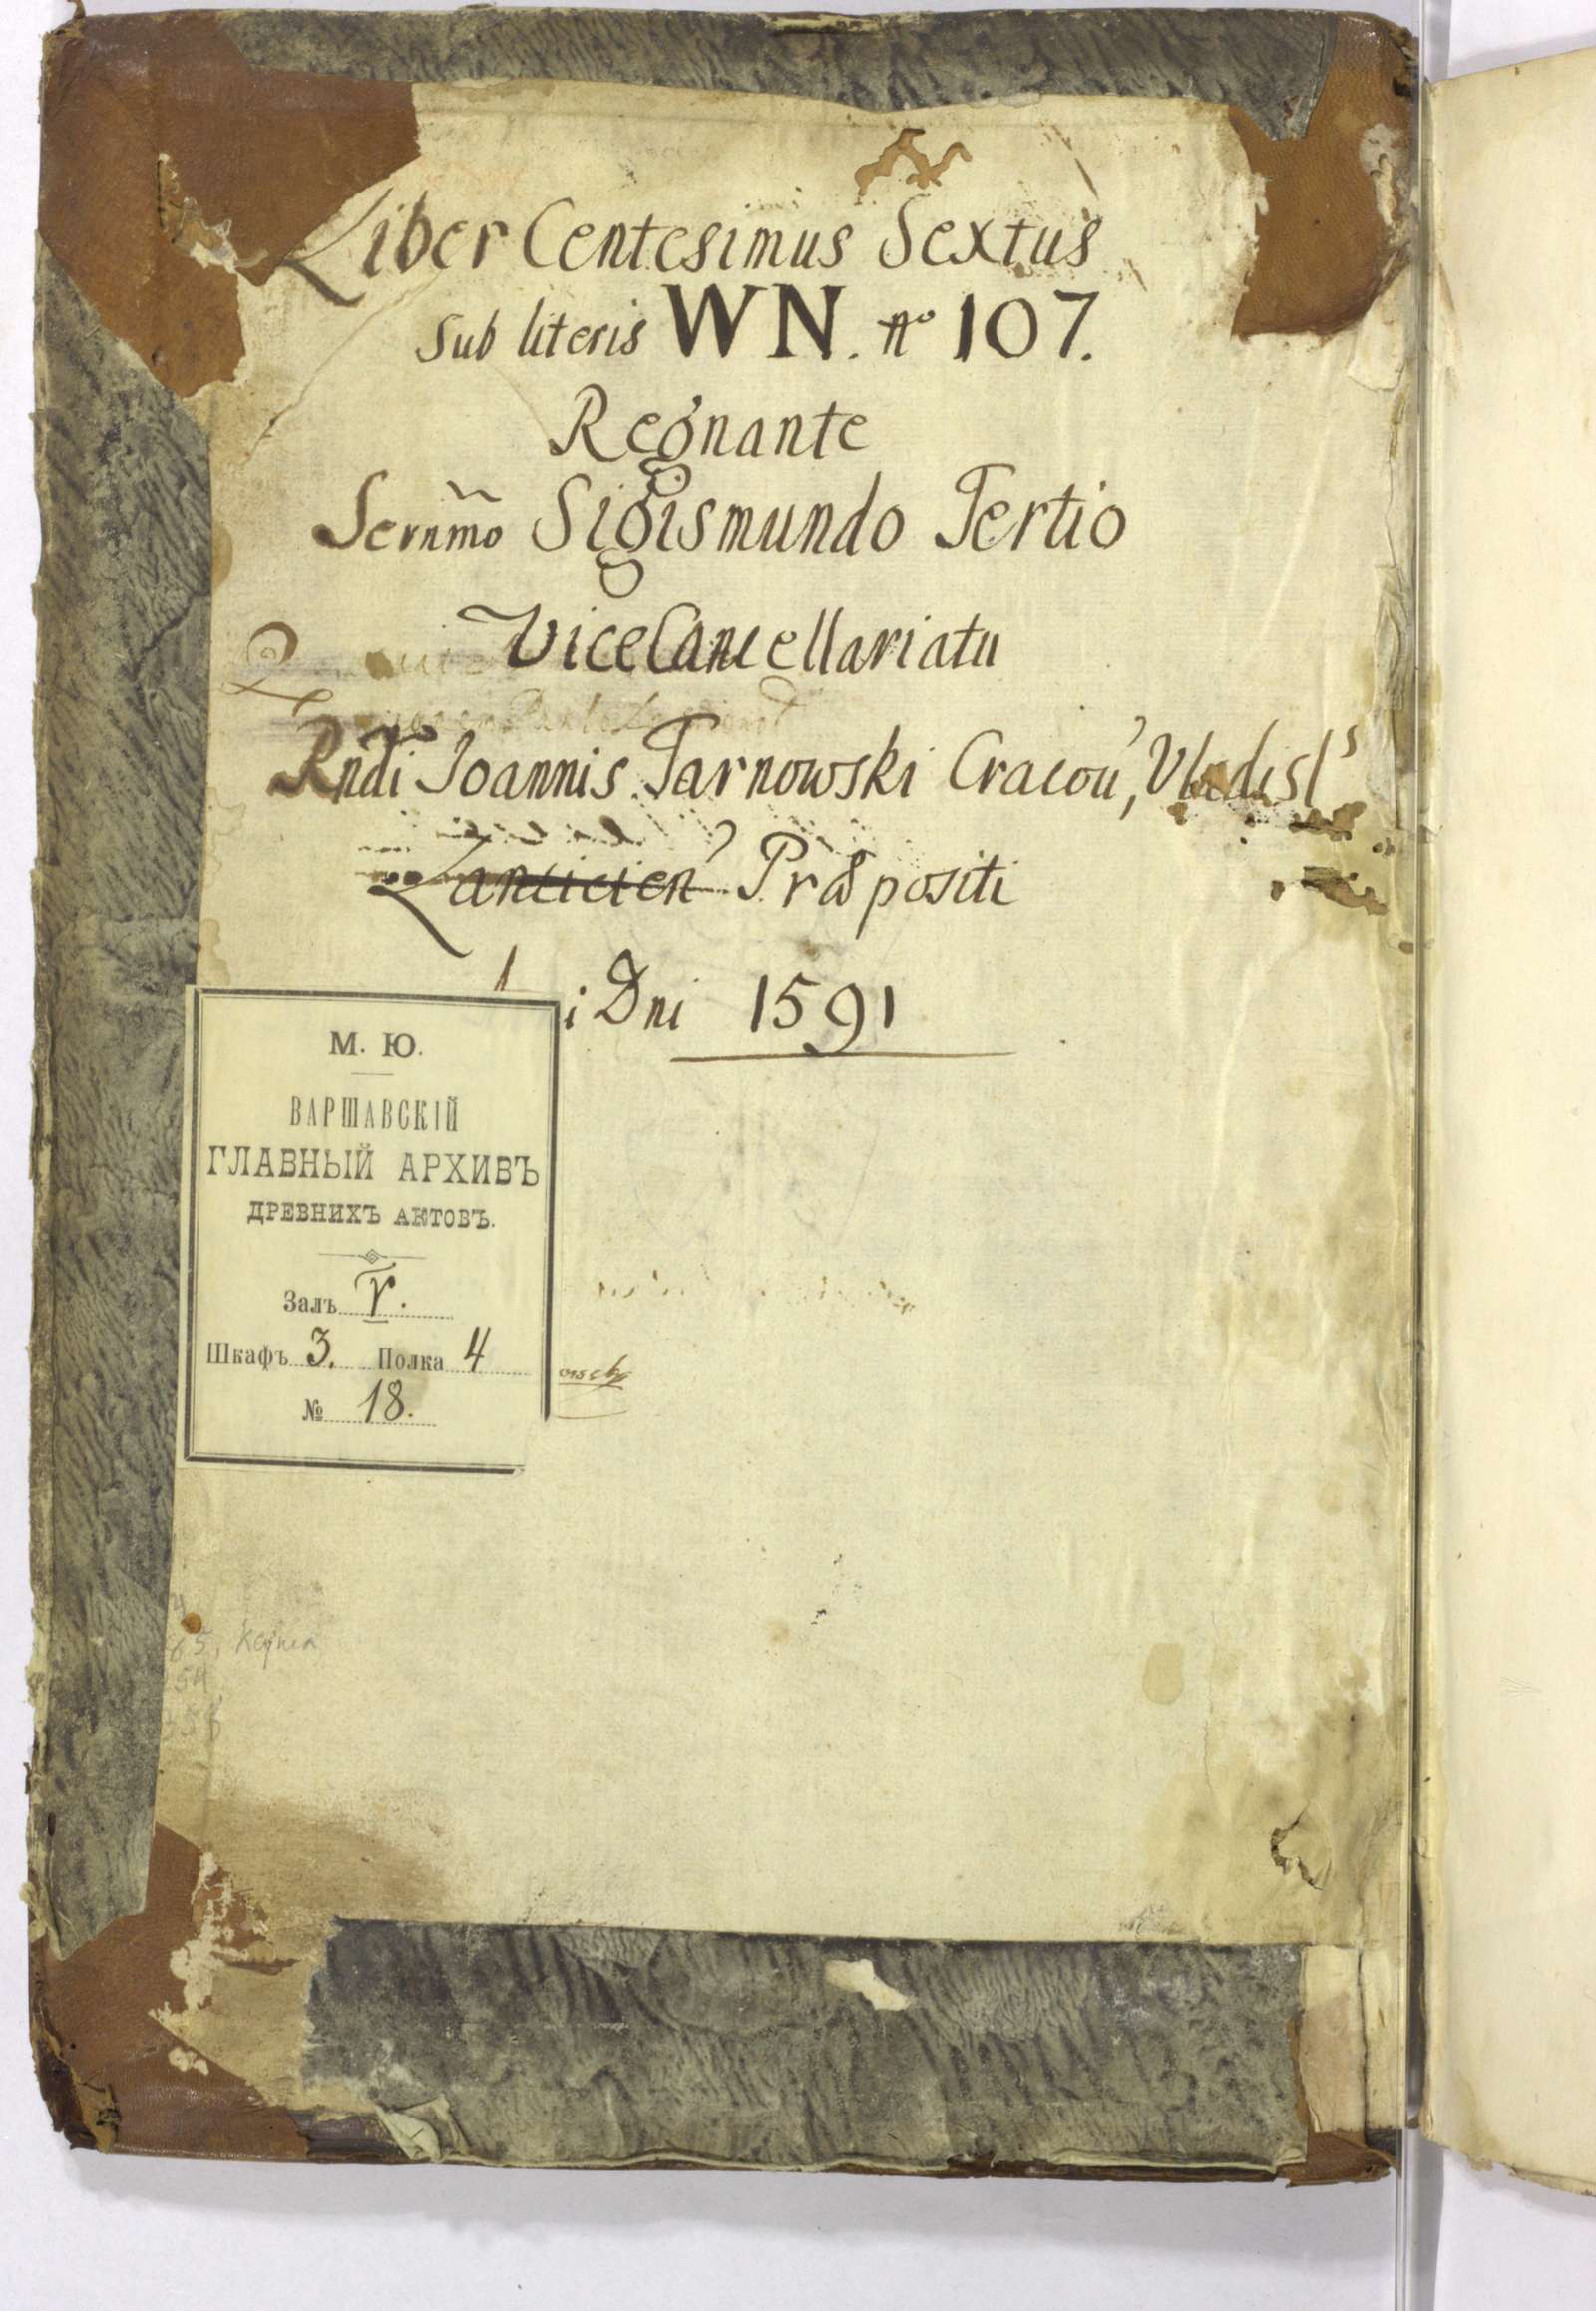 Liber Centesimus Sextus
Sub literis WN. no 107.
Regnante
Sernmo Sigismundo Tertio
ViceCancellariatu
Rndi Joannis Tarnowski Cracou, Vladisl s
Lanticien Præpositi
i Dni 1591
М. Ю.
ВАРШАВСКІЙ
ГЛАВНЫЙ АРХИВЪ
ДРЕВНИХЪ АКТОВЪ.
Залъ V.
Шкафъ 3. Полка 4
№ 18.